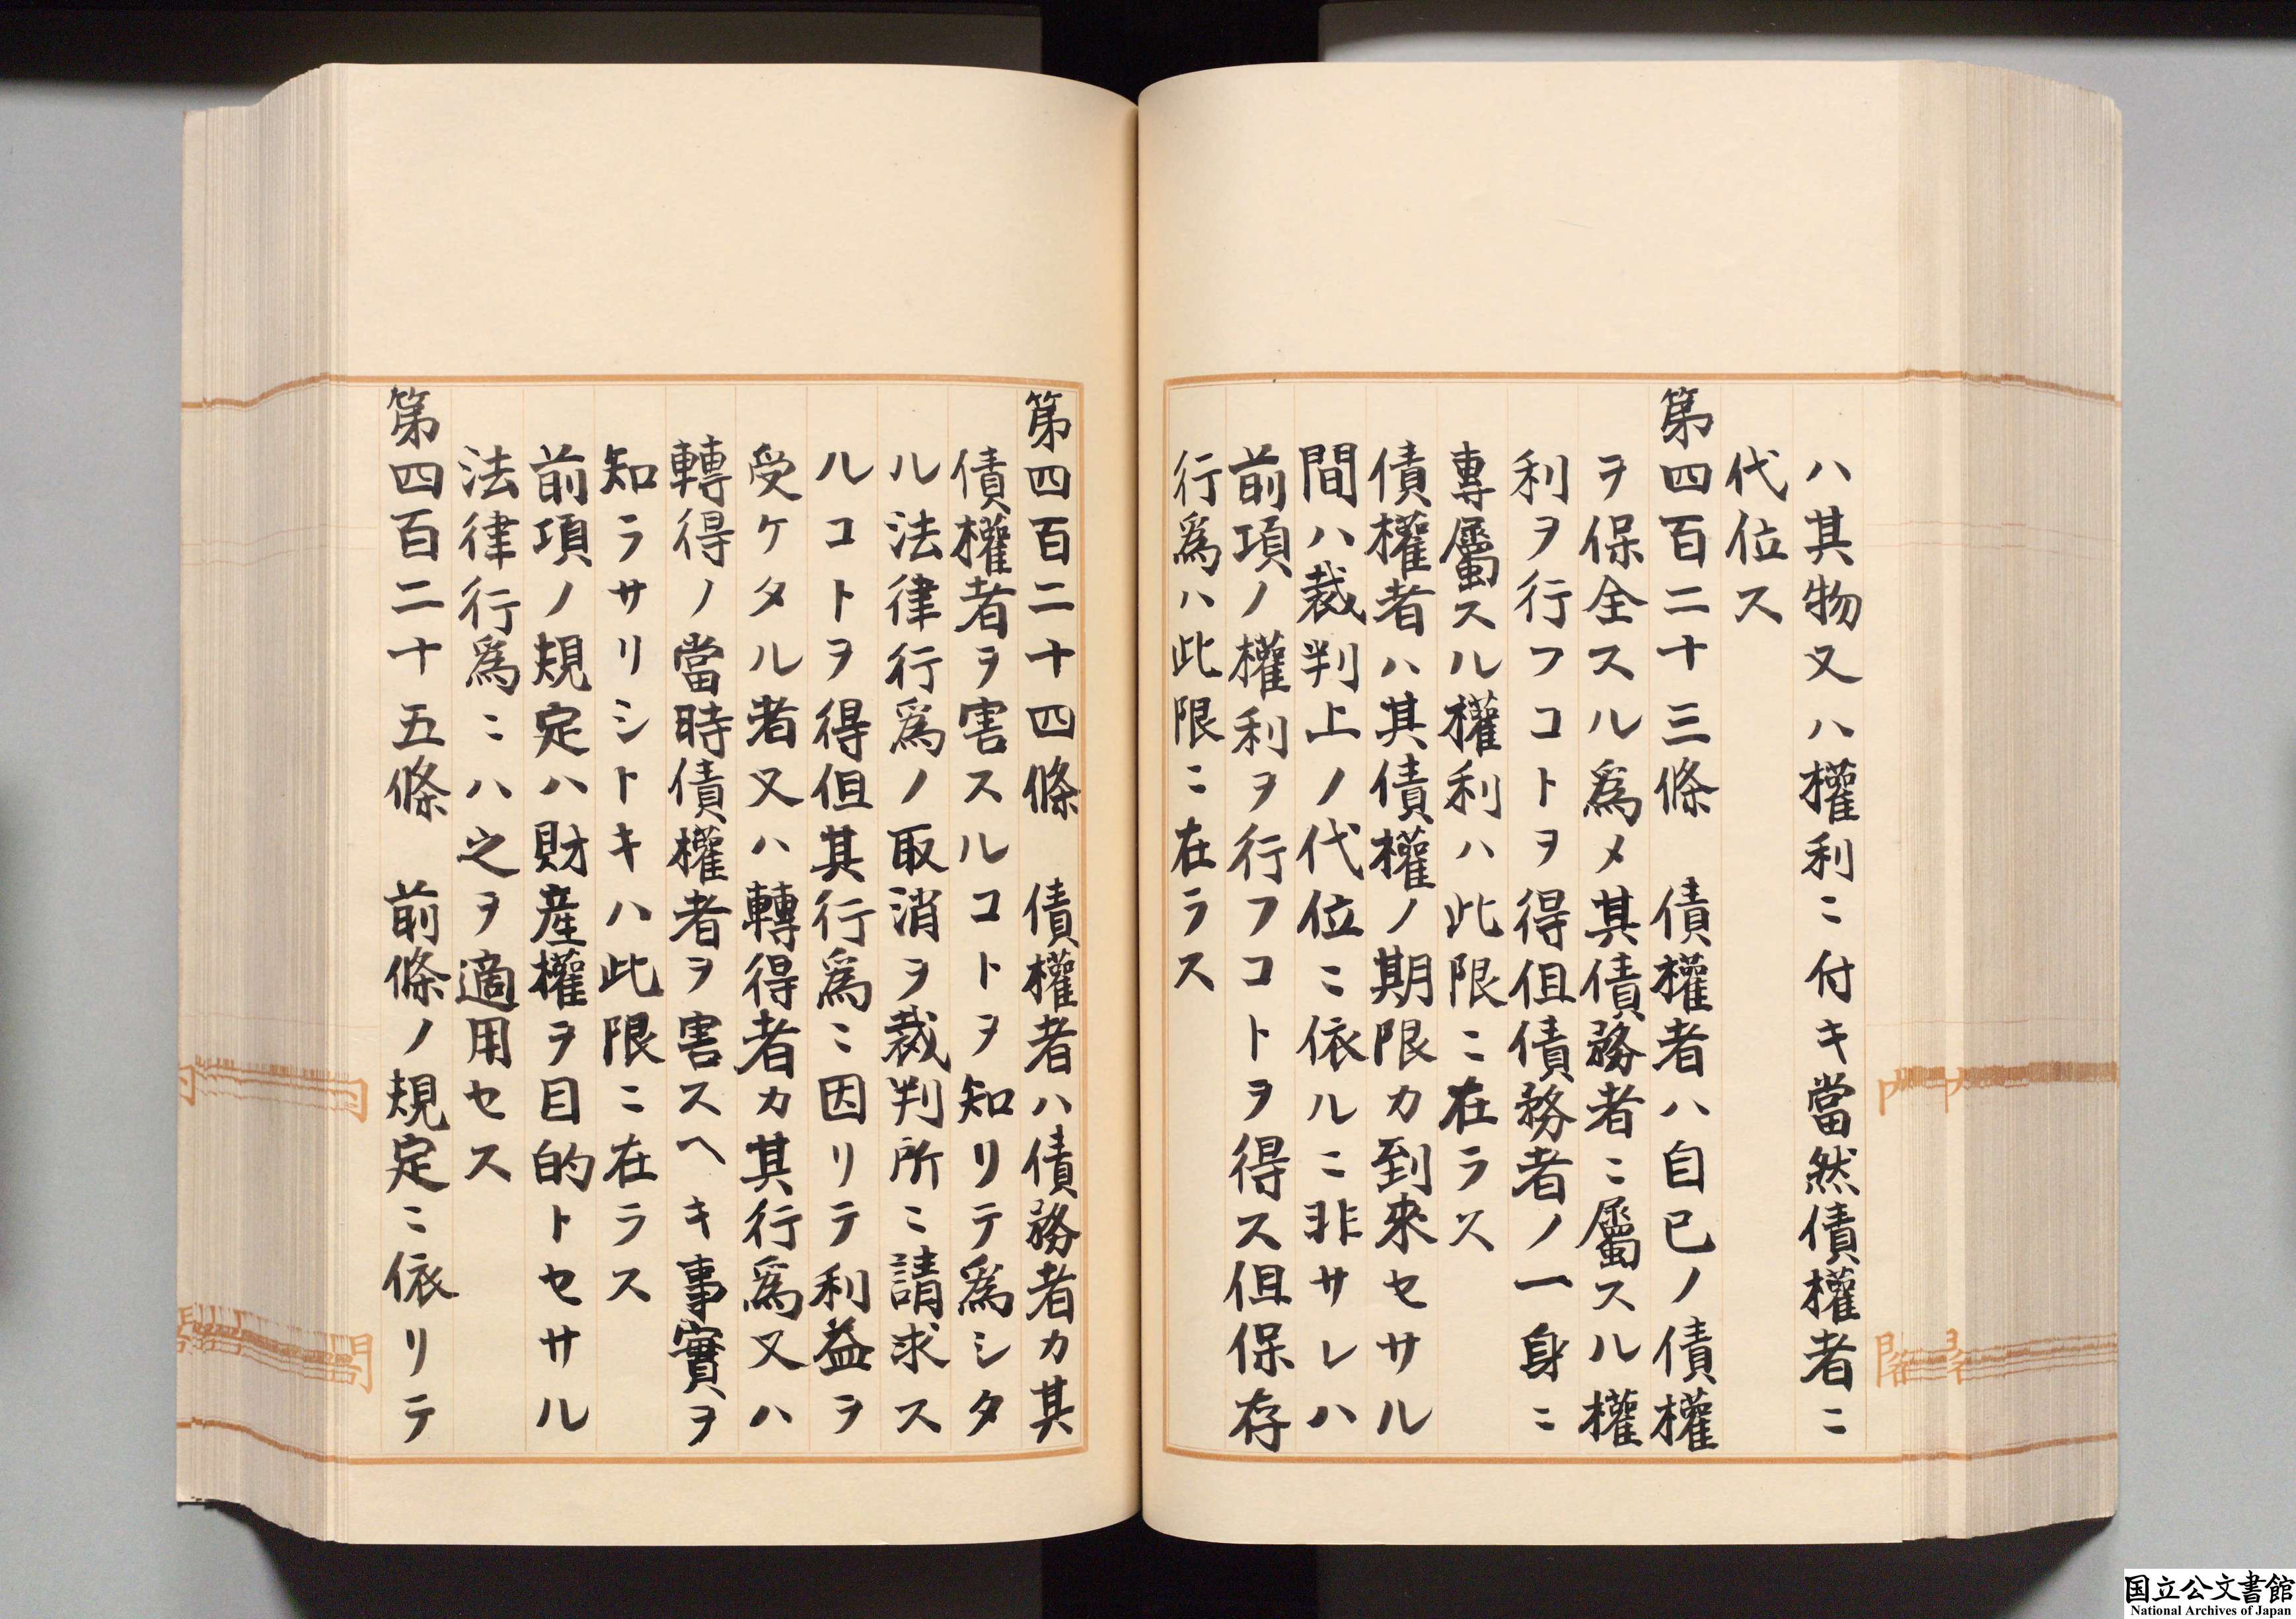 ハ其物又ハ權利ニ付キ當然債權者ニ
代位ス
第四百二十三條　債權者ハ自己ノ債權
ヲ保全スル爲メ其債務者ニ屬スル權
利ヲ行フコトヲ得但債務者ノ一身ニ
專屬スル權利ハ此限ニ在ラス
債權者ハ其債權ノ期限カ到來セサル
間ハ裁判上ノ代位ニ依ルニ非サレハ
前項ノ權利ヲ行フコトヲ得ス但保存
行爲ハ此限ニ在ラス
第四百二十四條　債權者ハ債務者カ其
債權者ヲ害スルコトヲ知リテ爲シタ
ル法律行爲ノ取消ヲ裁判所ニ請求ス
ルコトヲ得但其行爲ニ因リテ利益ヲ
受ケタル者又ハ轉得者カ其行爲又ハ
轉得ノ當時債權者ヲ害スヘキ事實ヲ
知ラサリシトキハ此限ニ在ラス
前項ノ規定ハ財産權ヲ目的トセサル
法律行爲ニハ之ヲ適用セス
第四百二十五條　前條ノ規定ニ依リテ
国立公文書館
National Archives of Japan